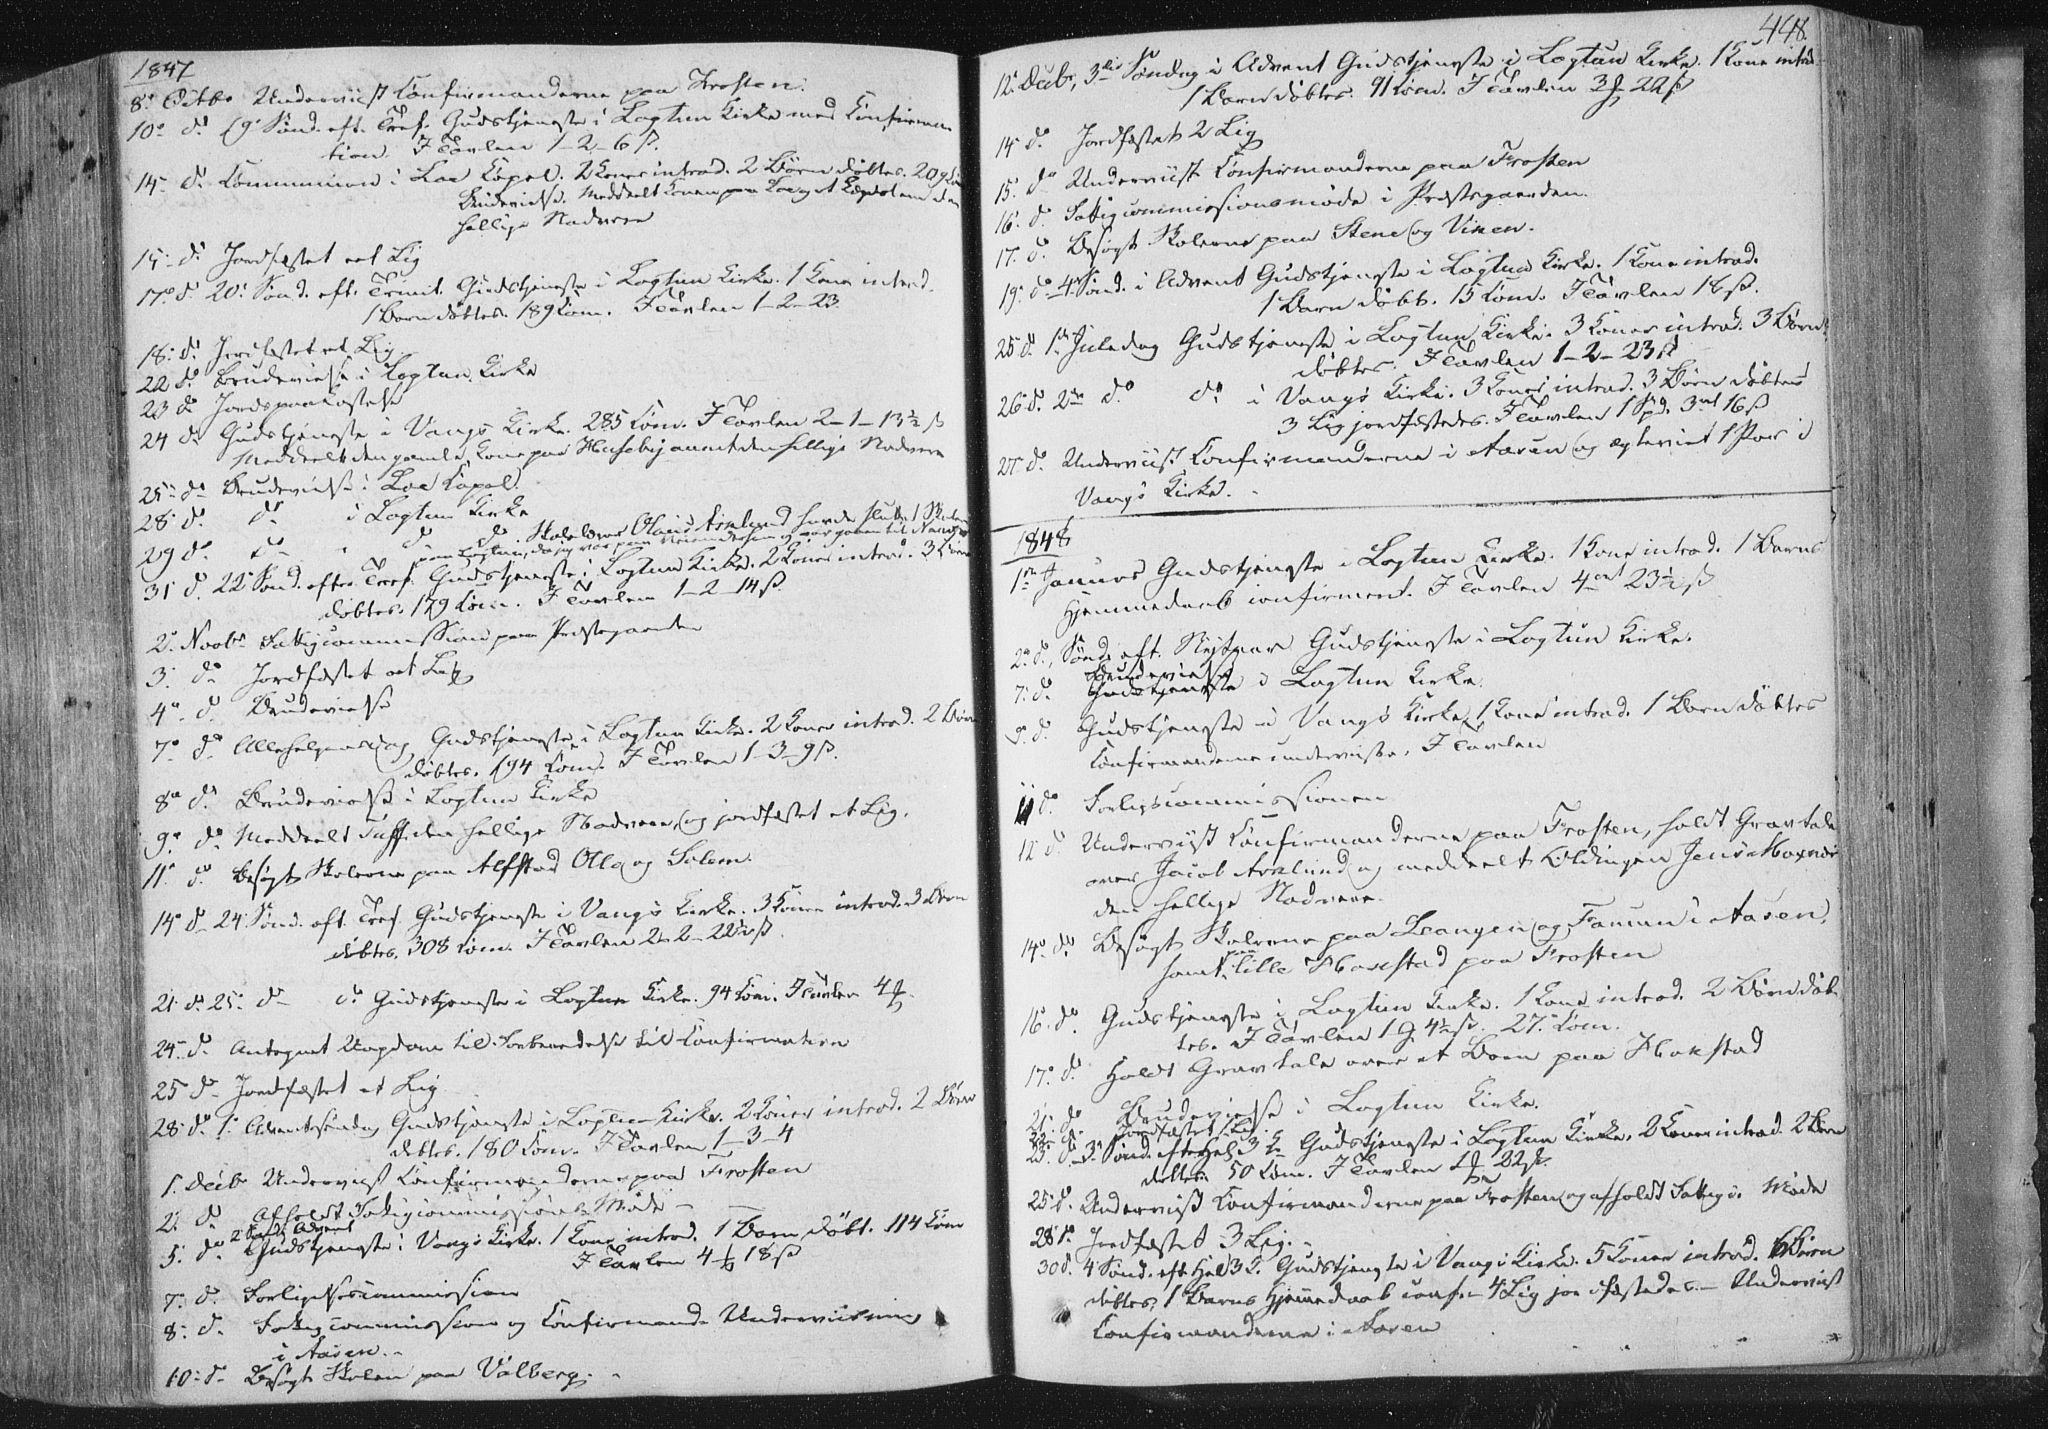 1847
8de Octbr Underviist Confirmanderne paa Frosten.
10de do 19de Sønd. eft. Tref. Gudstjeneste i Logtun Kirke med Confirma-
tion. I Tavlen 1-2-6 ß.
14de do Communion i Koner introd. 2 Børn døbtes. 209
Brudevielse. Meddeelt Konen paa den
hellige Nadvere
15de do Jordfæstet eet Lig
17de do 20de Sønd. eft. Trinit. Gudstjeneste i Logtun Kirke. 1 Kone introd.
1 Barn døbtes. 189 Com. I Tavlen 1-2-23
18de do Jordfæstet et Lig
22 do Brudevielse i Logtun Kirke
23 do Jordspaakastelse
24 do Gudstjeneste i Vangs Kirke. 285 Com. I Tavlen 2-1-13½ ß
Meddeelt den gamle Kone paa Husebyaunet den hellige Nadvere
25de do Brudevielse i Capel.
28 do do i Logtun Kirke
29 do do do do. Skolelærer Olaus Arnlund havde
31 do 22 Sønd. efter Tref. Gudstjeneste i Logtun Kirke. 2 Koner introd. 3 Børn
døbtes. 179 Com. I Tavlen 1-2-14 ß.
2de Novbr Fattigcommission paa Præstegaarden
3de do Jordfæstet eet Lig
4de do Brudevielse
7de do Allehelgensdag Gudstjeneste i Logtun Kirke. 2 Koner introd. 2 Børn
døbtes. 194 Com. I Tavlen 1-3-9 ß.
8de do Brudevielse i Logtun Kirke
9de do Meddeelt den hellige Nadvere, og jordfæstet et Lig.
11de do Besøgt Skolerne paa Alfstad Olla og Salem.
14de do 24 Sønd. eft. Tref. Gudstjeneste i Vangs Kirke. 3 Koner introd. 3 Børn
døbtes. 308 Com. I Tavlen 2-2-22½ ß.
21 do 25de do do Gudstjeneste i Logtun Kirke. 94 Com. I Tavlen 4
24de do Antegnet Ungdom til Forberedelse til Confirmation
25 do Jordfæstet et Lig
28de do 1ste Adventssøndag Gudstjeneste i Logtun Kirke. 2 Koner introd. 2 Børn
døbtes. 180 Com. I Tavlen 1-3-4
1. Decbr Underviist Confirmanderne paa Frosten
2de do Afholdt Fattigcommissions Møde
5de do 2 Sønd. i Advent Gudstjeneste i Vangs Kirke. 1 Kone introd. 1 Barn døbt. 114 Com
I Tavlen 4 18 ß
7de do Forligelsescommission
8de do Fattigcommission og Confirmand Underviisning
i Aasen.
10de do Besøgt Skolen paa Valberg.
448.
12de Decbr, 3die Søndag i Advent Gudstjeneste i Logtun Kirke. 1 Kone introd.
1 Barn døbtes. 91 Com. I Tavlen 3 22 ß
14de do Jordfæstet 2 Lig
15de do Underviist Confirmanderne paa Frosten
16de do Fattigcommissionsmøde i Præstegaarden.
17de do Besøgt Skolerne paa Stene og Viken.
19de do 4 Sønd. i Advent Gudstjeneste i Logtun Kirke. 1 Kone introd.
1 Barn døbt. 15 Com. I Tavlen 18 ß.
25 do 1ste Juledag Gudstjeneste i Logtun Kirke. 3 Koner introd. 3 Børn
døbtes. I Tavlen 1-2-23 ß
26 do 2den do do i Vangs Kirke. 3 Koner introd. 3 Børn døbtes
3 Lig jordfæstedes. I Tavlen 1 Spd. 3 ort 16 ß
27 do Underviist Confirmanderne i Aasen og ægteviet 1 Par i
Vangs Kirke.
1848
1ste Januar Gudstjeneste i Logtun Kirke. 1 Kone introd. 1 Barns
Hjemmedaab confirmeret. I Tavlen 4 ort 23½ ß
2de do, Sønd. eft. Nytaar Gudstjeneste i Logtun Kirke.
7de do Brudevielse i Logtun Kirke.
9de do Gudstjeneste i Vangs Kirke 1 Kone introd. 1 Barn døbtes
Confirmanderne underviste. I Tavlen
11 do Forligscommissionen
12 do Underviist Confirmanderne paa Frosten, holdt Gravtale
over Jacob Arnlund og meddeelt Oldingen Jens Moxnæs
den hellige Nadvere.
14de do Besøgt Skolerne paa Leangen og Fanum i Aasen,
samt paa lille Hoxstad paa Frosten
16de do Gudstjeneste i Logtun Kirke. 1 Kone introd. 2 Børn døb-
tes. I Tavlen 1 4½ ß. 27 Com.
17de do Holdt Gravtale over et Barn paa Hoxstad
21de do Brudevielse i Logtun Kirke.
22 do Jordfæstet 1 Lig.
23 do 3de Sønd. eft. Hel. 3 K. Gudstjeneste i Logtun Kirke. 2 Koner introd. 2 Børn
døbtes. 50 Com. I Tavlen 22 ß.
25 do Underviist Confirmanderne paa Frosten og afholdt Fattigs. Møde
28 do Jordfæstet 3 Lig.
30 do 4 Sønd. eft. Hel. 3 K. Gudstjeneste i Vangs Kirke. 5 Koner introd. 6 Børn
døbtes, 1 Barns Hjemmedaab conf. 4 Lig jordfæstedes. Underviist
Confirmanderne i Aasen